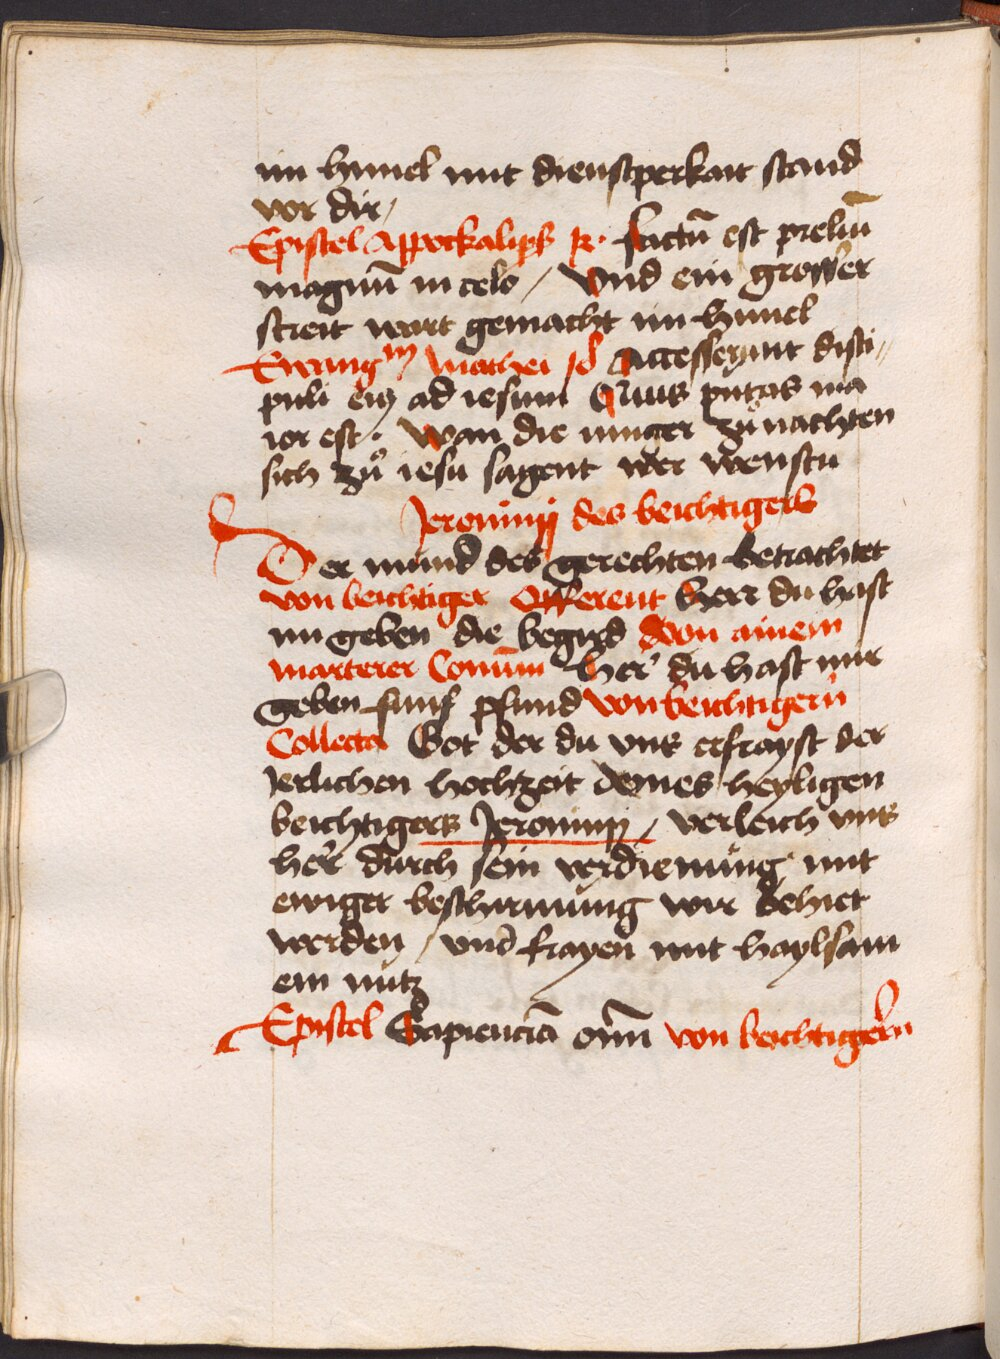 im himel mit dienstperkait stand
vor dir /
Epistel Appockalips 12 · factū est preliū
magnū in celo / Und ein grosser
streit wart gemacht im himel
Ewangm mathei 18 Accesserunt disci //
puli eiꝯ ad iesum Quis putas ma
ior est · Wan die iunger zů nachten
sich zů iesu sagent wer wenstu
Jeronimij des beichtigers
Der mund des gerechten betrachtet
von beichtiger Offerent herr du hast
im geben die begird von ainem
marterer Comūn her' du hast mir
geben funf pfund von beichtigern
Collecta Got der du vns erfrayst der
Jerlichen hochzeit deines heyligen
beichtigers Jeronimij / verleich vns
herr durch sein verdienung mit
ewiger beschirmung wir behiet
werden / und frayen mit haylsam
em nutz
Epistel Sapienciā om̄ von beichtigern